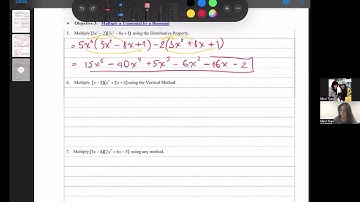 Objective 3: Multiply a Trinomial by a Binomial
5. Multiply (5x³ − 2)(3x² − 8x + 1) using the Distributive Property.
= 5x³(3x² − 8x + 1) − 2(3x² + 8x + 1)
= 15x⁵ − 40x⁴ + 5x³ − 6x² − 16x − 2
6. Multiply (x − 2)(x² + 2x + 4) using the Vertical Method.
7. Multiply (3x − 4)(2x² + 6x − 5) using any method.